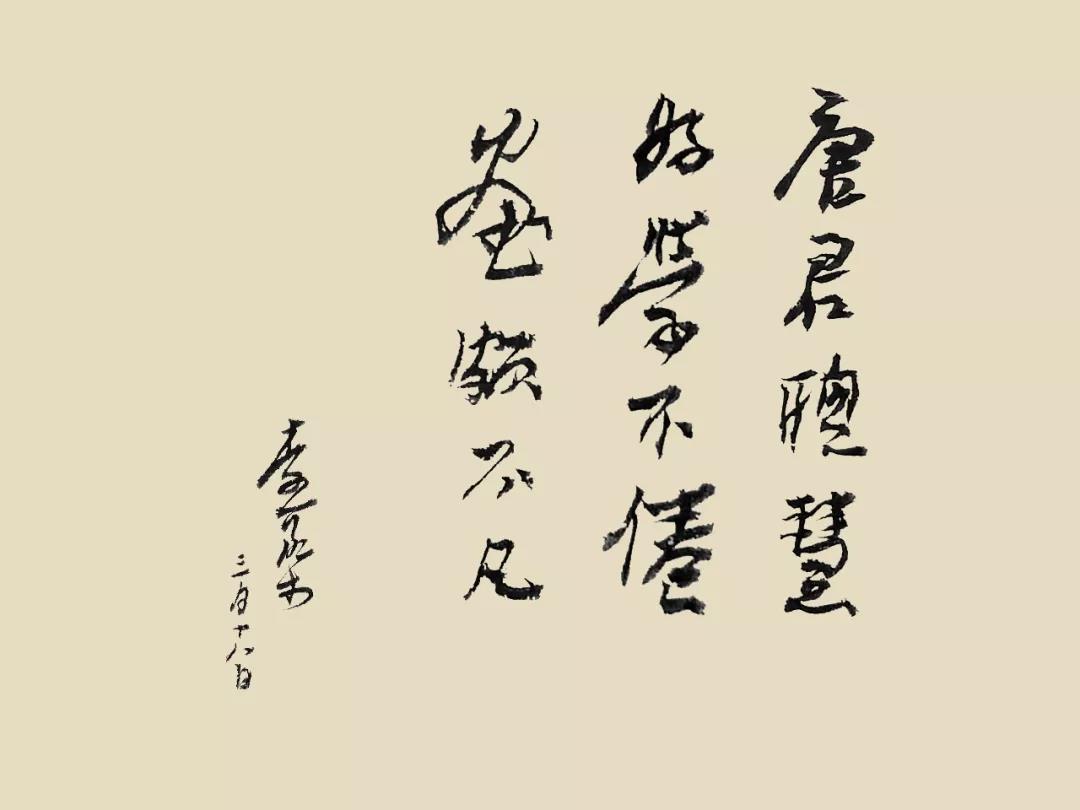 唐君聰慧
好學不倦
畫頗不凡
李可染
三月十八日